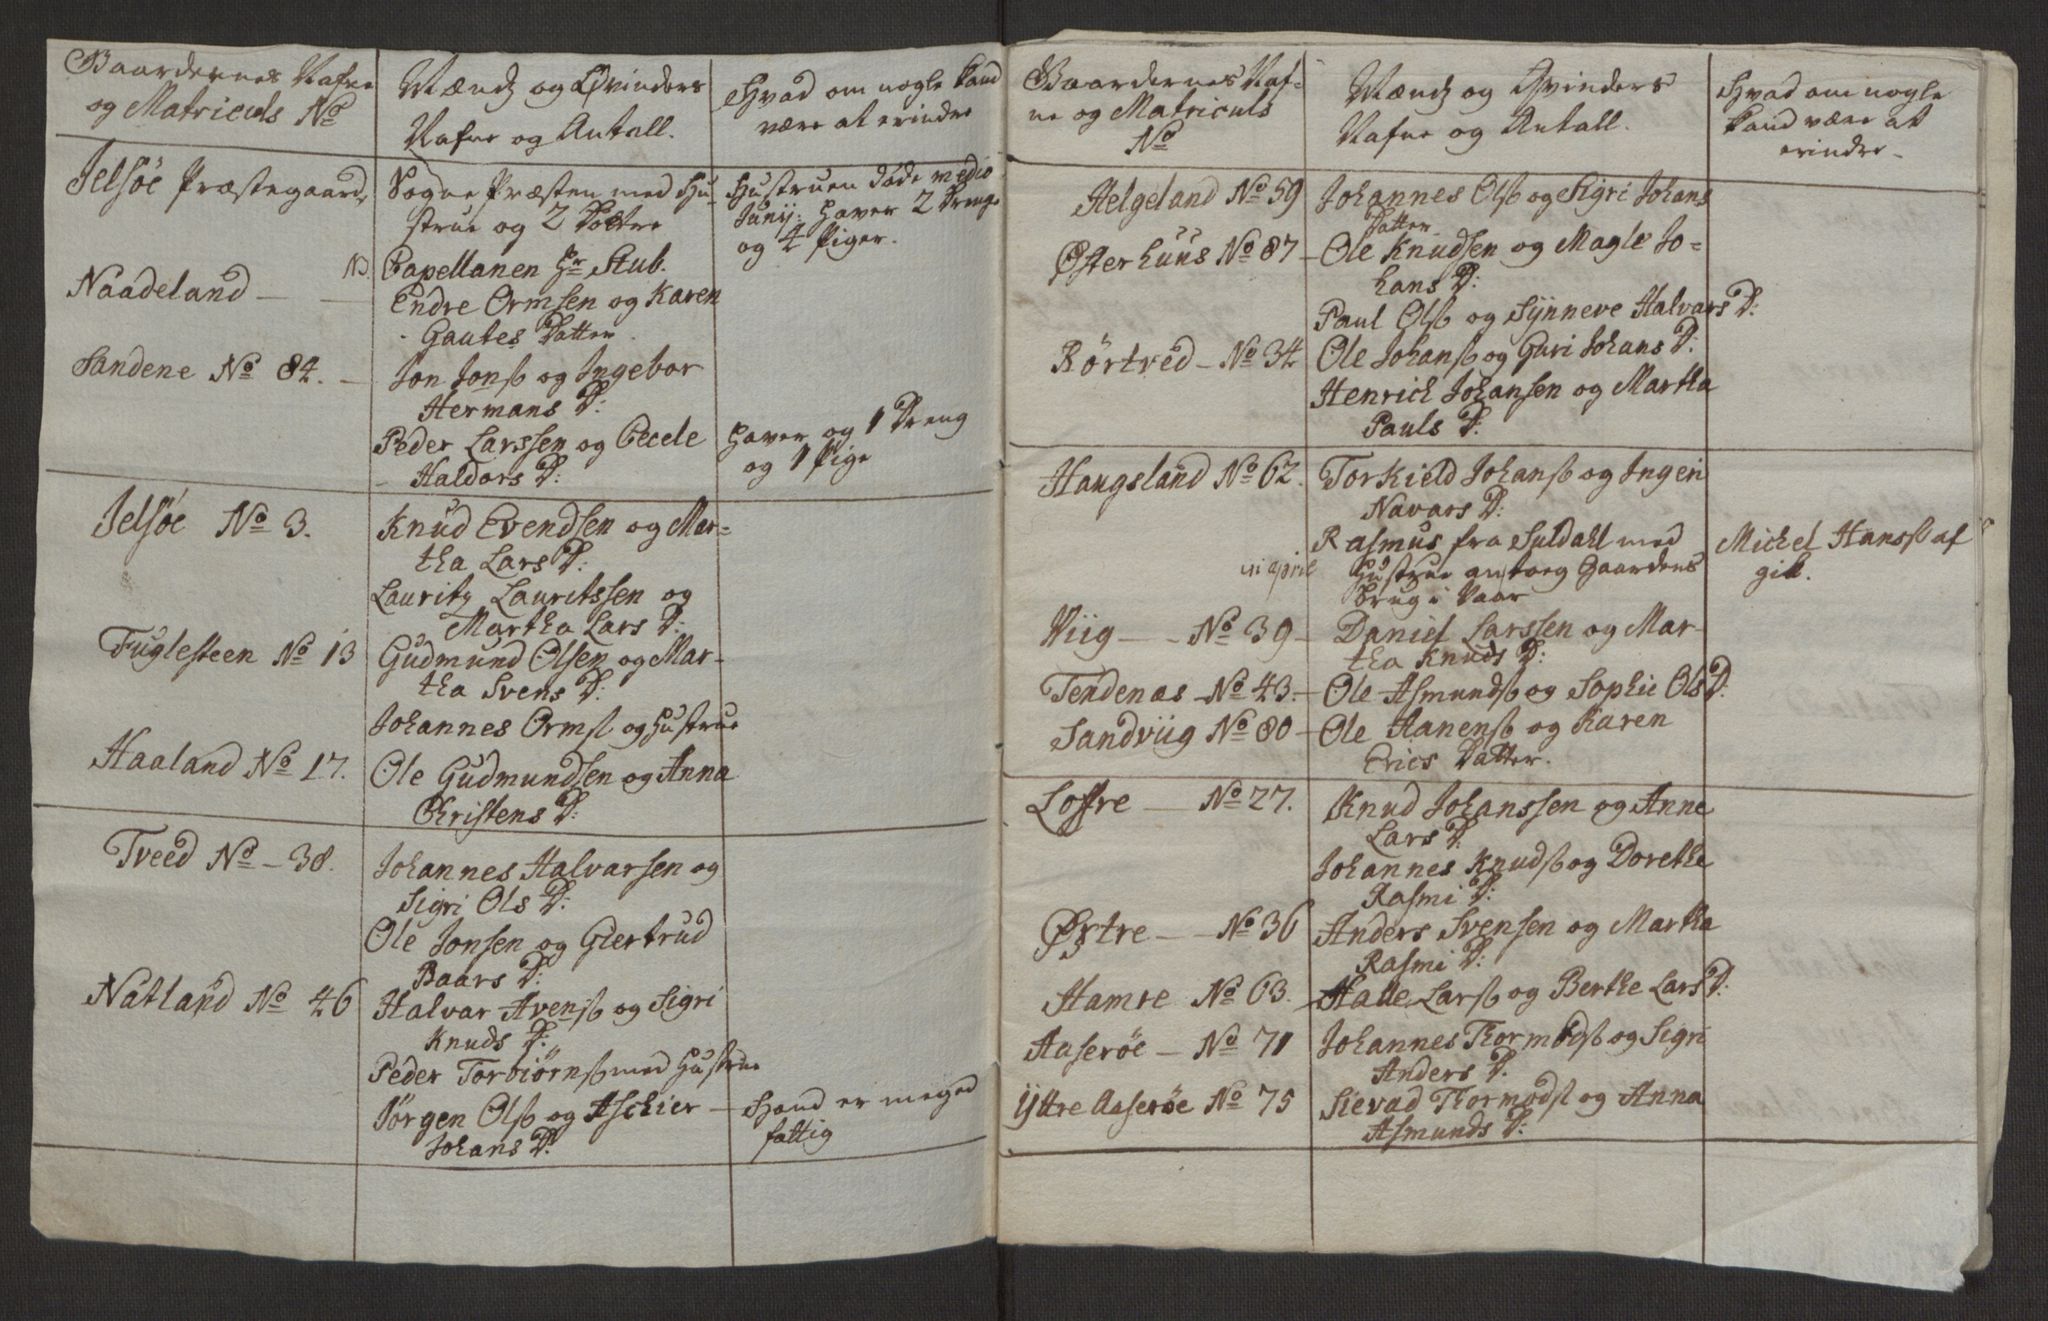 Gaardernes Nafne
og Matriculs No
Mænds og Qvinders
Nafne og Antall.
Hvad om nogle kand
være at erindre
Jelsøe Præstegaard
Sogne Præsten med Hu-
strue og 2 Døttre
Hustruen døde medio
Junij: haver 2 Drenge
og 4 Piger.
Capellanen Hr Stub.
Naadeland —
Endre Ormsen og Karen
Gautes Datter
Sandene No 84. —
Jon Jonss og Ingebor
Hermans D:
Peder Larssen og Cecele
Haldors D:
haver og 1 Dreng
og 1 Pige
Jelsøe No 3.
Knud Evendsen og Mar-
tha Lars D:
Lauritz Lauritssen og
Martha Lars D:
Fuglesteen No 13
Gudmund Olsen og Mar-
tha Svens D:
Johannes Orms og Hustrue
Haaland No 17.
Ole Gudmundsen og Anna
Christens D:
Tveed No – 38.
Johannes Halvarsen og
Sigri Ols D:
Ole Jonsen og Giertrud
Baars D:
Natland No 46
Halvar Avenss og Sigri
Knuds D:
Peder Torbiørnss med Hustrue
Jørgen Olss og Aschier —
Johans D:
Hand er meged
fattig
Gaardernes Naf-
ne og Matriculs
No
Mænds og Qvinders
Nafne og Antall.
Hvad om nogle
kand være at
erindre –
Helgeland No 59
Johannes Olss og Sigri Johans
Datter
Østerhuus No 87 –
Ole Knudsen og Magle Jo-
hans D:
Paul Olss og Synneve Halvars D:
Børtved – No 34
Ole Johanss og Guri Johans D:
Henrich Johansen og Martha
Pauls D:
Haugsland No 62.
Torkield Johanss og Ingeri
Navars D:
Rasmus fra Suldahl med
Hustrue antoeg Gaardens
brug i Vaar
april
Michel Hanss af
gik.
Viig — No 39 –
Daniel Larssen og Mar-
tha Knuds D:
Tendenas – No 43. –
Ole Asmundss og Sophie Ols D:
Sandviig No 80 –
Ole Hanenss og Karen
Erics Datter.
Lostre — No 27.
Knud Johanssen og Anne
Lars D:
Johannes Knudss og Dorethe
Rasmi D:
Østre — No 36
Anders Svensen og Martha
Rasmi D:
Hamre No 63.
Halle Larss og Berthe Lars D:
Aaserøe – No 71
Johannes Thormodss og Sigri
Anders D:
Yttre Aaserøe No 75
Sievad Thormods og Anna
Asmunds D: